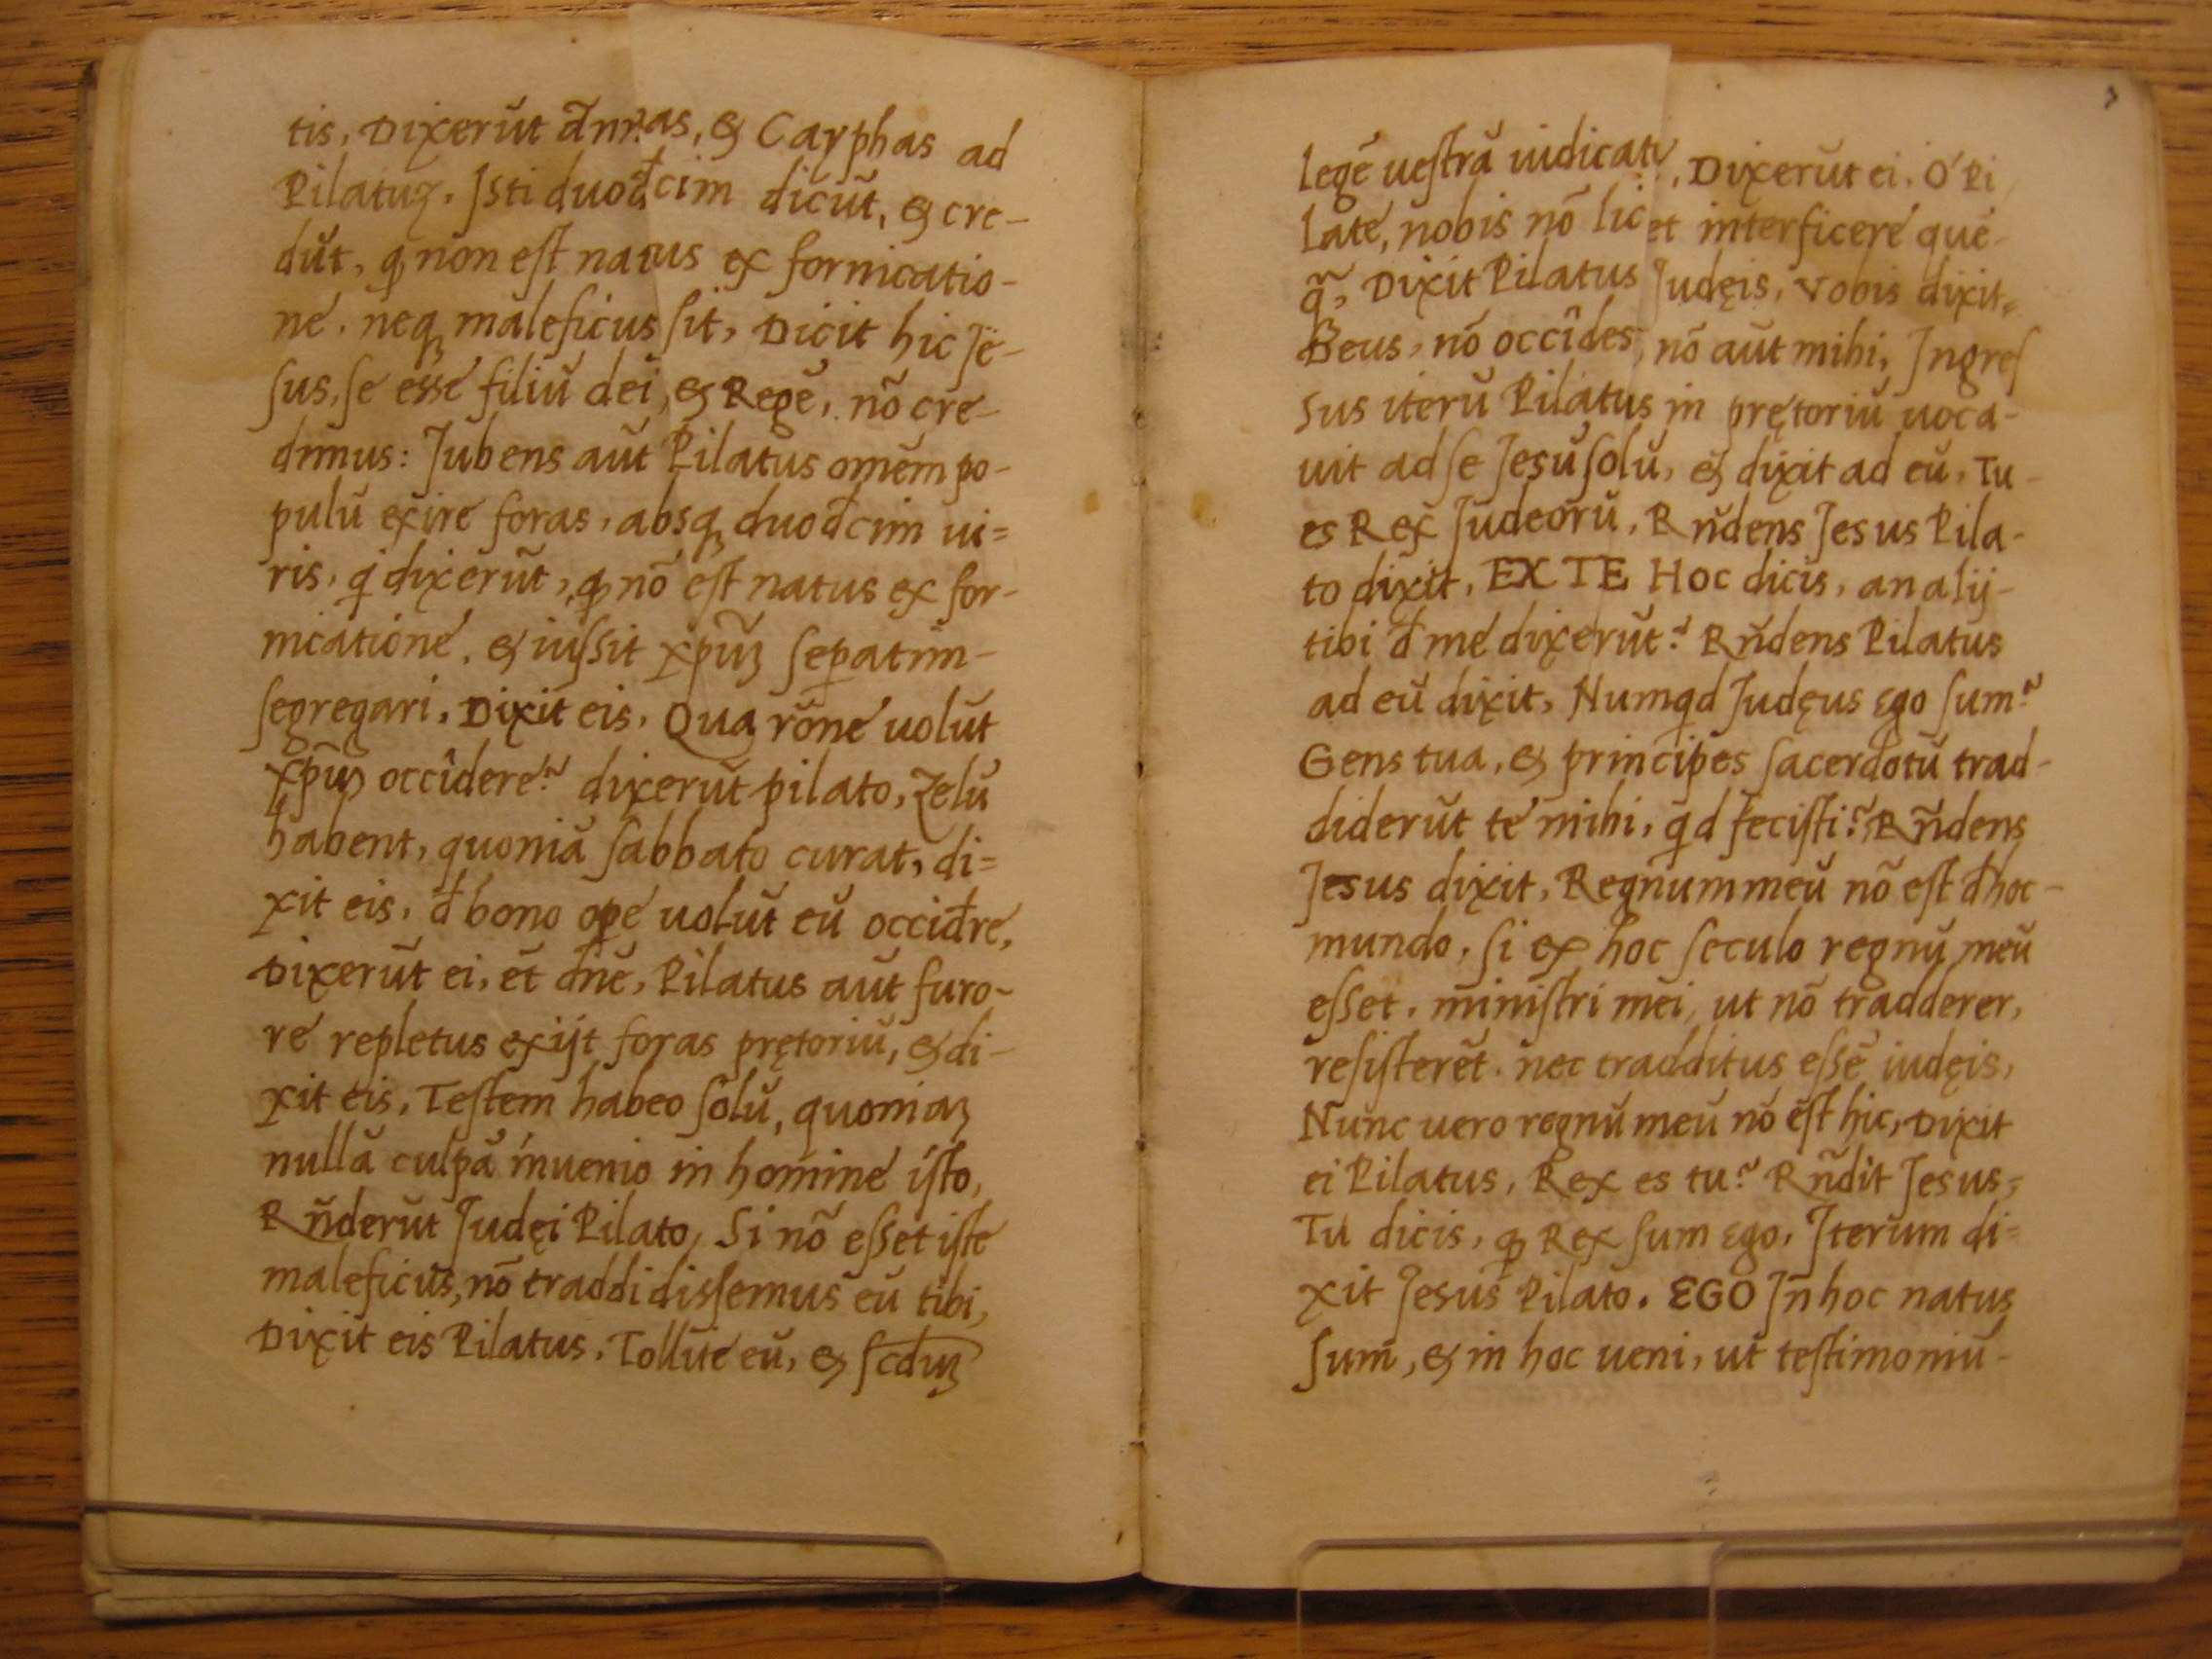 tis, Dixerūt Annas, & Cayphas ad
Pilatuȝ. Isti duođcim dicūt, & cre-
dūt, ꝙ non est natus ex fornicatio-
ne. neqꝫ maleficus sit, Dicit hic Je-
sus, se esse filiū dei, & Regē, nō cre-
dimus: Jubens aūt Pilatus omēm po-
pulū exire foras, absqꝫ duođcim ui=
ris, qͥ dixerūt, ꝙ nō est natus ex for-
nicatione. & iussit xp̄uȝ sep̱atim-
segregari. Dixit eis, Qua rōne uolūt
xp̄uȝ occîdere? dixerūt pilato, Zelū
habent, quoniā sabbato curat, di=
xit eis, đ bono ope uolūt eū occiđre,
Dixerūt ei, ēt dn̄e, Pilatus aūt furo-
re repletus exijt foras prętoriū, & di-
xit eis, Testem habeo solū, quoniaȝ
nullā culpā inuenio in homine isto,
Rn̄derūt Judęi Pilato, Si nō esset iste
maleficus, nō traddidissemus eū tibi,
Dixit eis Pilatus, Tollite eū, & scd̄uȝ
legē uestrā iudicate, Dixerūt ei, O' Pi
late, nobis nō licet interficere quē-
q̃, Dixit Pilatus Judęis, Vobis dixit
Deus, nō occîdes, nō aūt mihi, Ingres
sus iterū Pilatus in prętoriū uoca-
uit ad se Jesū solū, & dixit ad eū, Tu-
es Rex Judeorū, Rn̄dens Jesus Pila-
to dixit, EX TE Hoc dicis, an alij-
tibi đ me dixerūt? Rn̄dens Pilatus
ad eū dixit, Numqd Judęus Ego sum?
Gens tua, & principes sacerdotū trad-
diderūt te mihi, qͥd fecisti? Rn̄dens
Jesus dixit, Regnum meū nō est đ hoc-
mundo, si ex hoc seculo regnū meū
esset. ministri mei, ut nō tradderer,
resisterēt. nec tradditus essē iudęis,
Nunc uero regnū meū nō est hic, Dixit
ei Pilatus, Rex es tu? Rn̄dit Jesus,
Tu dicis, ꝙ Rex sum Ego, Iterum di=
xit Jesus Pilato. EGO In hoc natus
sum, & in hoc ueni, ut testimoniū-